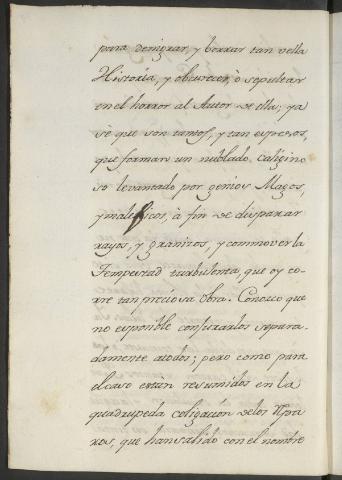 para denigrar, y borrar tan vella
Historia, y obscurecer, ò sepultar
en el horror al Autor de ella; ya
se que son tantos, y tan espesos,
que forman un nublado caligino
so levantado por genios Magos,
y maleficos, à fin de disparar
rayos, y granizos, y commover la
Tempestad turbulenta, que oy co-
rre tan preciosa obra. Conosco que
no es posible confutarlos separa-
damente atodos; pero como para
el caso estàn resumidos en la
quadrupeda coligacion de los
xos, que han salido con el nombre